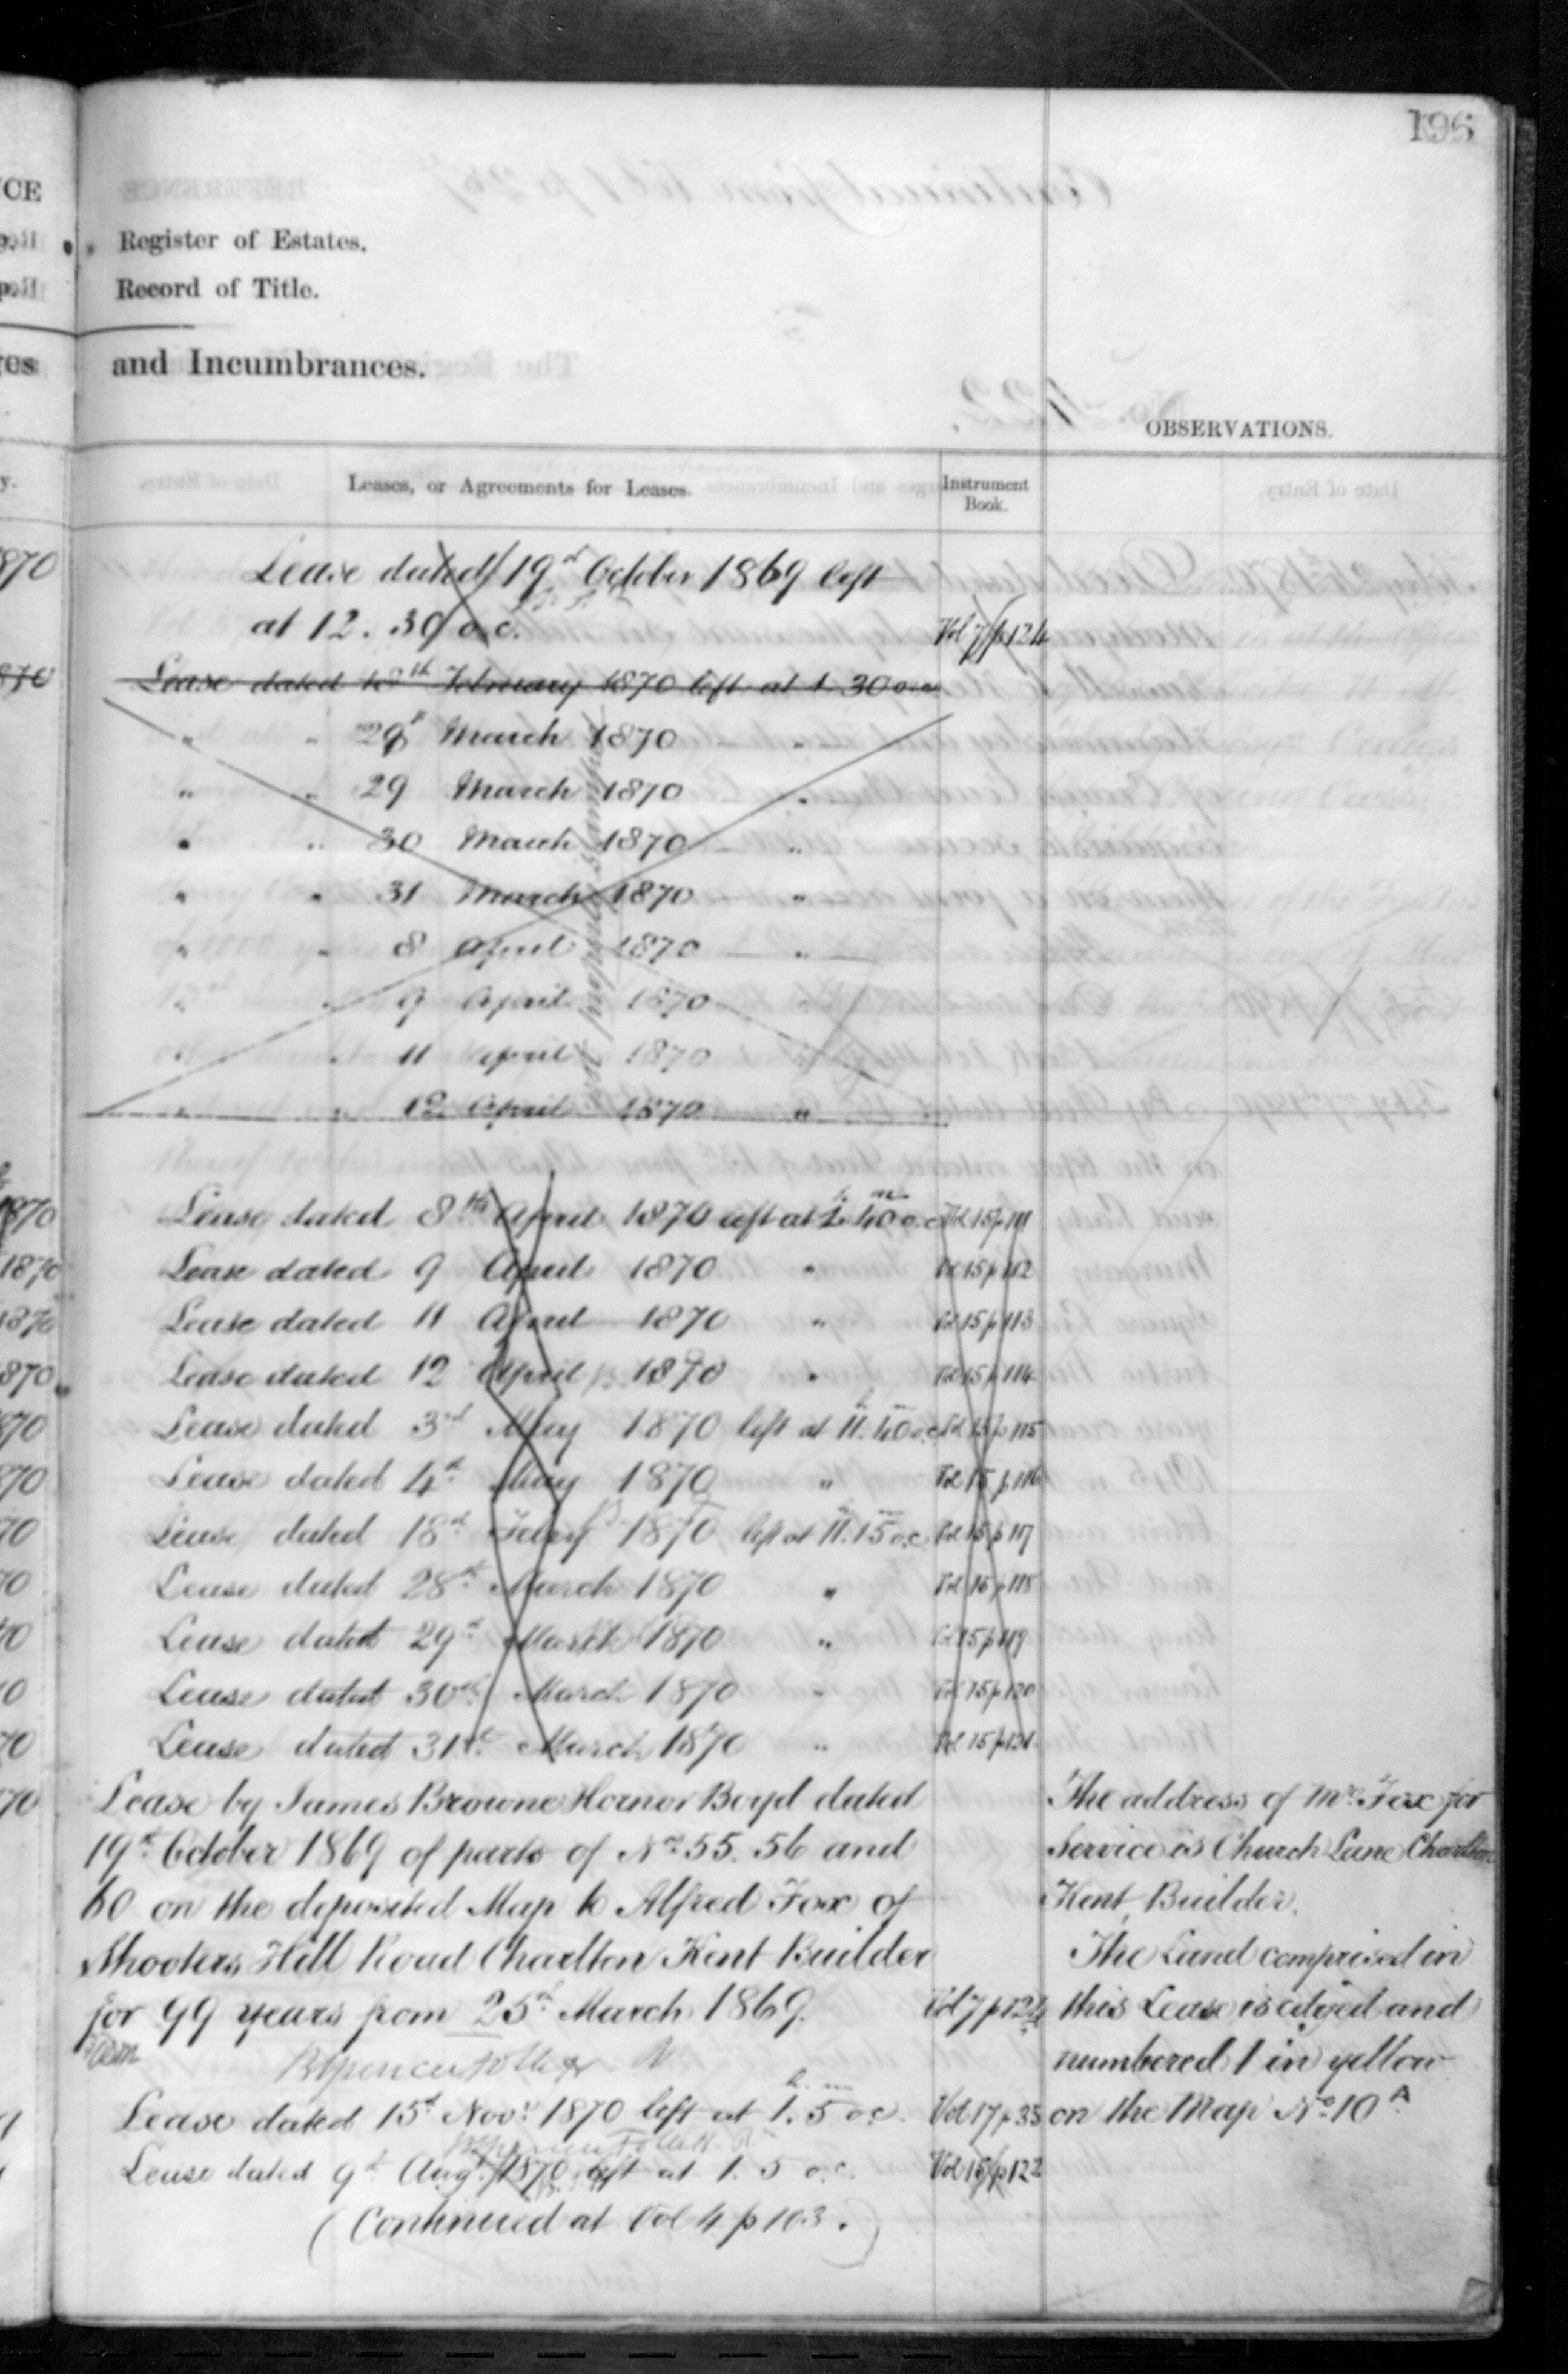 196
Register of Estates.
Record of Title.
and Incumbrances.
OBSERVATIONS.
Leases, or Agreements for Leases.
Instrument
Book.
Lease dated 19th October 1869 left
at 12. 30 o.c. Vol 7 p 124
Lease dated 18th February 1870 left at 1 30 o.c.
" " 28th March 1870 "
" " 29 March 1870 "
" " 30 March 1870 "
" " 31 March 1870 "
" " 8 April 1870 "
" " 9 April 1870 "
" " 11 April 1870 "
" " 12 April 1870 "
not properly stamped
Lease dated 8th April 1870 left at 1. 40 o.c. Vol 15 p 111
Lease dated 9 April 1870 " Vol 15 p 112
Lease dated 11 April 1870 " Vol 15 p 113
Lease dated 12 April 1870 " Vol 15 p 114
Lease dated 3rd May 1870 left at 11. 40 o.c. Vol 15 p 115
Lease dated 4th May 1870 " Vol 15 p 116
Lease dated 18th Feby 1870 left at 11. 15 o.c. Vol 15 p 117
Lease dated 28th March 1870 " Vol 15 p 118
Lease dated 29th March 1870 " Vol 15 p 119
Lease dated 30th March 1870 " Vol 15 p 120
Lease dated 31st March 1870 " Vol 15 p 121
Lease by James Browne Hornor Boyd dated
19th October 1869 of parts of Nos 55. 56 and
60 on the deposited Map to Alfred Fox of
Shooters Hill Road Charlton Kent Builder
for 99 years from 25th March 1869. Vol 7 p 124
Lease dated 15th Novr 1870 left at 1. 5 o.c. Vol 17 p 33
Lease dated 9th Augt 1870 left at 1. 5 o.c. Vol 15 p 122
(Continued at Vol 4 p 103.)
The address of Mr. Fox for
Service is Church Lane Charlton
Kent, Builder.
The Land comprised in
this Lease is edged and
numbered 1 in yellow
on the Map No. 10 A